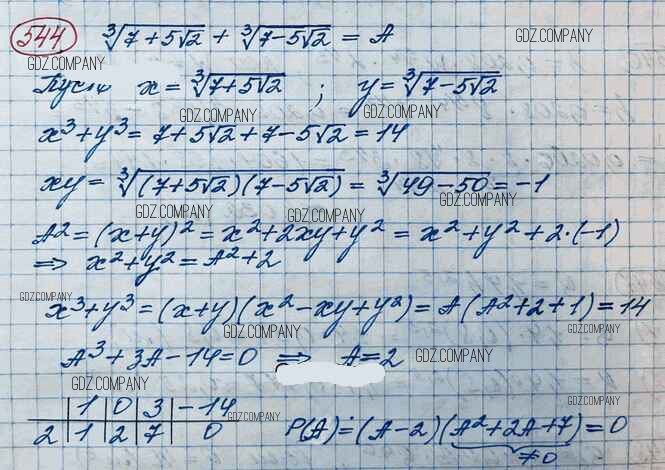 544 ∛(7+5√2) + ∛(7-5√2) = A
GDZ.COMPANY
GDZ.COMPANY
Пусть x = ∛(7+5√2) ; y = ∛(7-5√2)
GDZ.COMPANY
GDZ.COMPANY
GDZ.COMPANY
x³+y³ = 7+5√2+7-5√2 = 14
GDZ.COMPANY
xy = ∛((7+5√2)(7-5√2)) = ∛(49-50) = -1
GDZ.COMPANY
GDZ.COMPANY
GDZ.COMPANY
A² = (x+y)² = x²+2xy+y² = x²+y²+2·(-1)
⇒ x²+y² = A²+2
GDZ.COMPANY
x³+y³ = (x+y)(x²-xy+y²) = A(A²+2+1) = 14
GDZ.COMPANY
GDZ.COMPANY
A³+3A-14=0 ⇒ A=2
GDZ.COMPANY
GDZ.COMPANY
1 0 3 -14
GDZ.COMPANY
GDZ.COMPANY
2 1 2 7 0 P(A) = (A-2)(A²+2A+7) = 0
≠0
GDZ.COMPANY